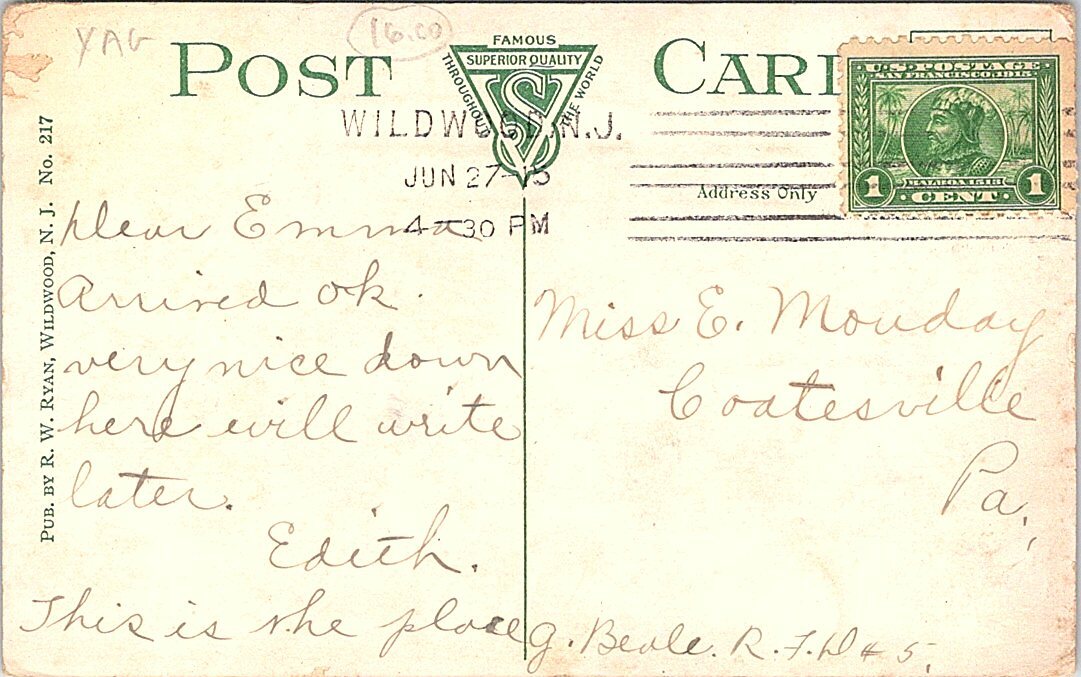 YAG
16.00
POST CARD
FAMOUS
SUPERIOR QUALITY
THROUGHOUT THE WORLD
WILDWOOD, N.J.
JUN 27 15
4-30 PM
Address Only
U.S. POSTAGE
SAN FRANCISCO 1915
BALBOA 1513
1 CENT 1
PUB. BY R. W. RYAN, WILDWOOD, N. J. No. 217
Dear Emma
Arrived ok.
very nice down
here will write
later.
Edith.
This is the place
Miss E. Monday
Coatesville
Pa.
G. Beale. R.F.D # 5.